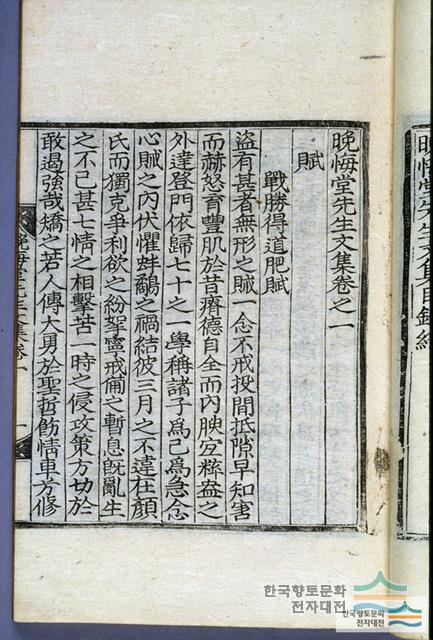 晩悔堂先生文集目錄終
晩悔堂先生文集卷之一
賦
戰勝得道肥賦
盗有甚者無形之賊一念不戒投間抵隙早知害
而赫怒育豊肌於昔瘠德自全而內腴宜粹盎之
外達登門依歸七十之一學稱諸子爲己爲急念
心賊之內伏懼蚌鷸之禍結彼三月之不違在顔
氏而獨克爭利欲之紛挐寧戒備之暫息旣亂生
之不已甚七情之相擊苦一時之侵攻策方切於
敢遏強哉矯之若人傳大勇於聖哲飭情車方修
晩悔堂先生文集卷一
一
한국향토문화
전자대전
한국향토문화
전자대전